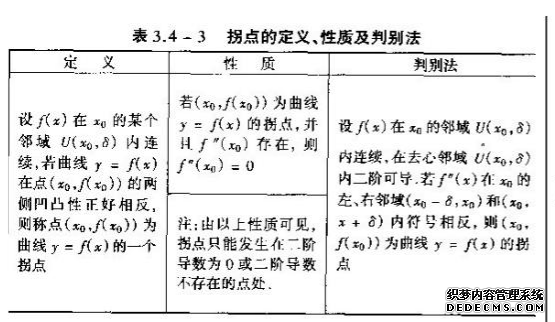 表 3.4 - 3 拐点的定义、性质及判别法
定 义
设 f(x) 在 x₀ 的某个
邻域 U(x₀,δ) 内连
续,若曲线 y = f(x)
在点(x₀,f(x₀))的两
侧凹凸性正好相反,
则称点(x₀,f(x₀))为
曲线 y = f(x)的一个
拐点
性 质
若(x₀,f(x₀))为曲线
y = f(x) 的拐点,并
且 f″(x₀) 存在, 则
f″(x₀) = 0
注:由以上性质可见,
拐点只能发生在二阶
导数为 0 或二阶导数
不存在的点处.
判别法
设 f(x) 在 x₀ 的邻域 U(x₀,δ)
内连续,在去心邻域 U(x₀,δ)
内二阶可导.若 f″(x) 在 x₀ 的
左、右邻域(x₀ - δ,x₀) 和(x₀,
x + δ) 内符号相反, 则(x₀,
f(x₀)) 为曲线 y = f(x) 的拐
点
织梦内容管理系统
DEDECMS.COM